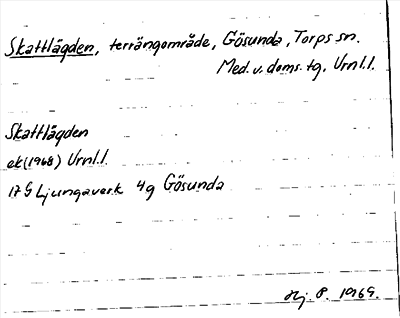 Skattlägden, terrängområde, Gösunda, Torps sn.
Med. v. doms. tg. Vrnl. l.
Skattlägden
ek (1968) Vrnl. l.
17 G Ljungaverk 4g Gösunda
Hj. P. 1969.